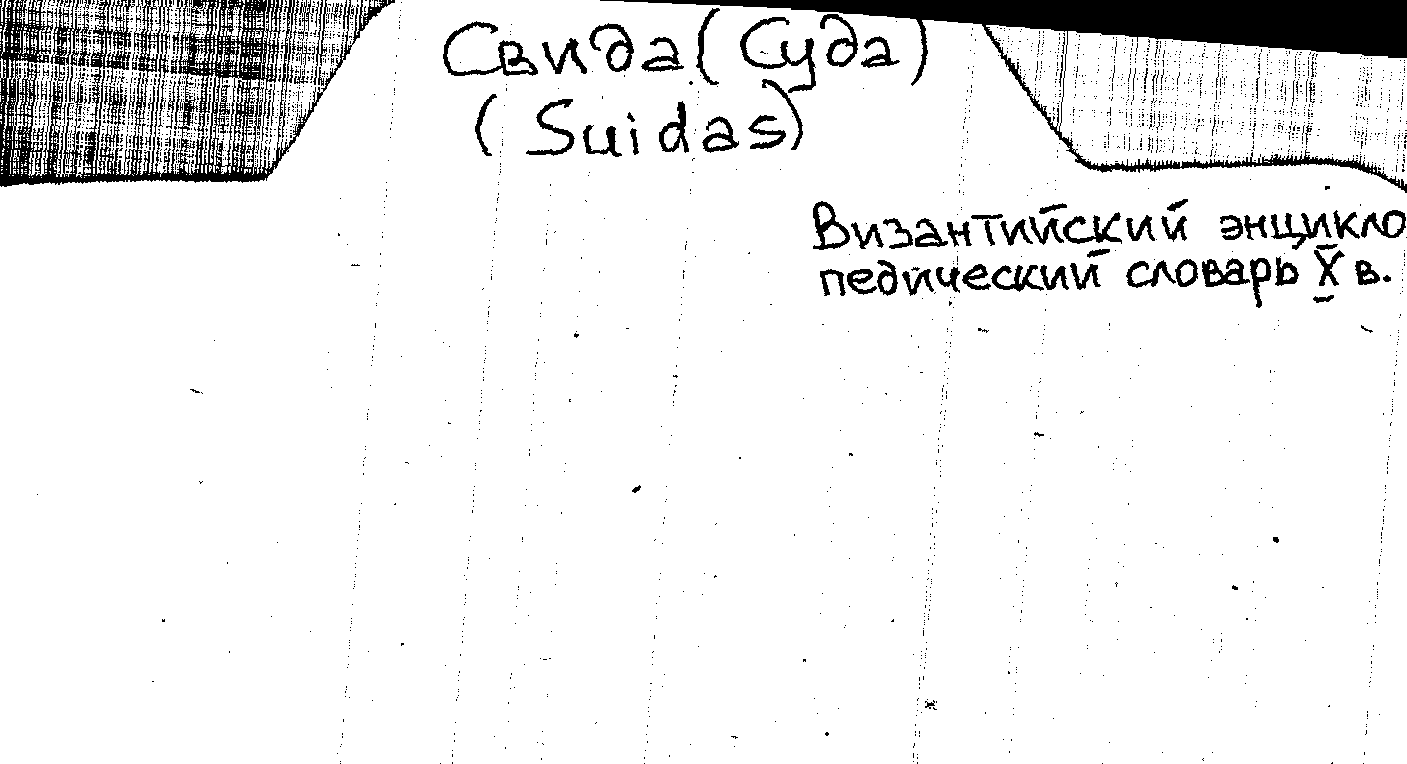 Свида (Суда)
(Suidas)
Византийский энцикло
педический словарь X в.